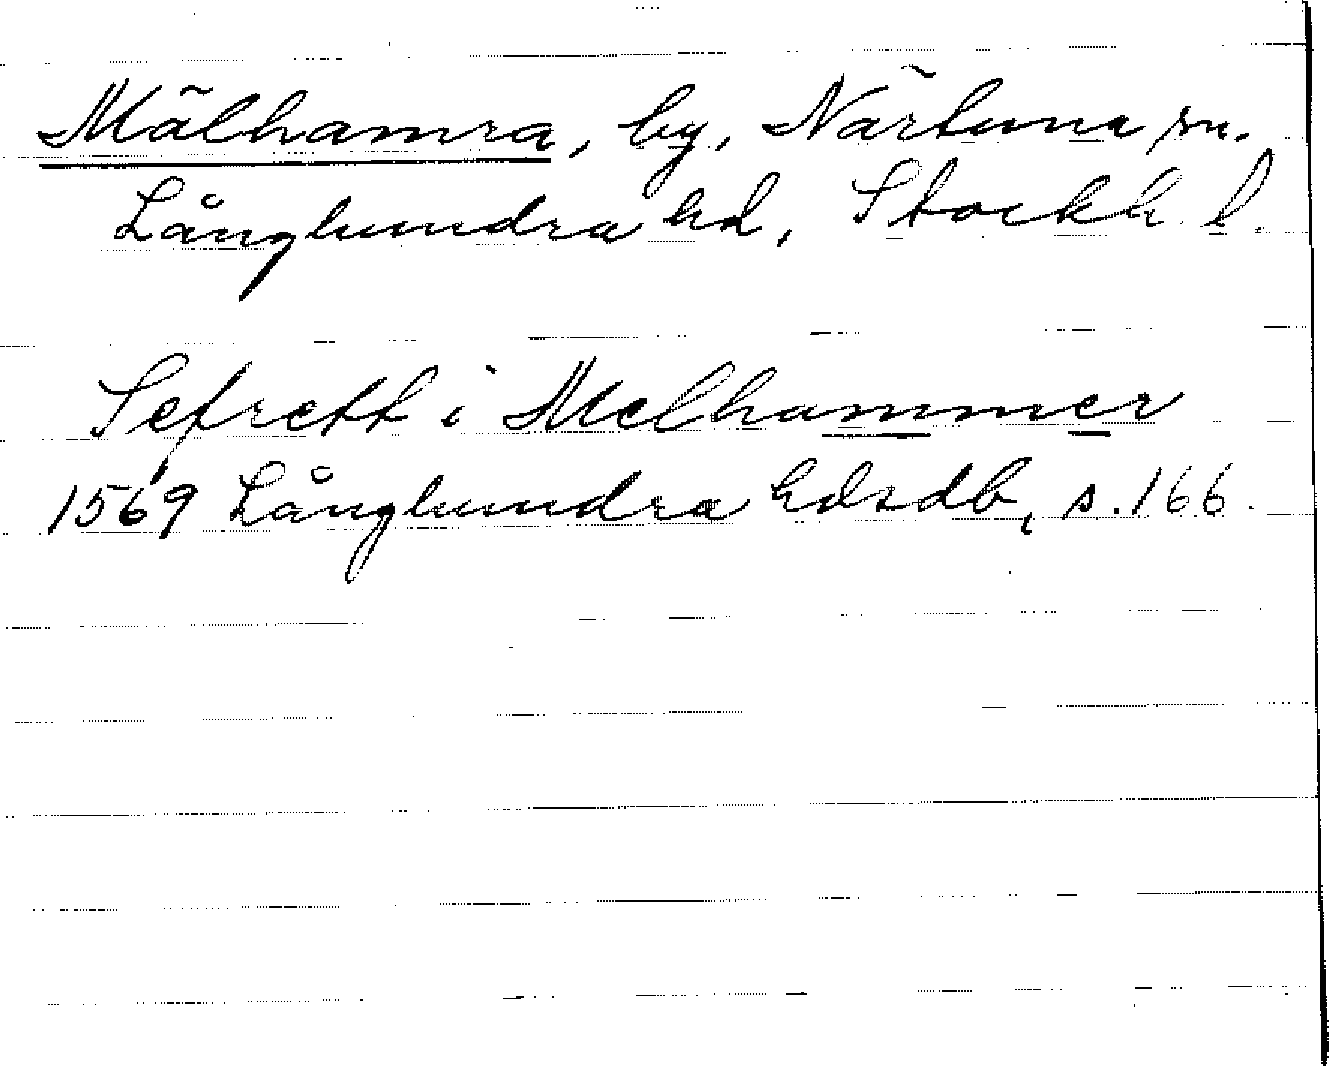 Mälhamra, by, Närtuna sn.
Långhundra hd, Stockh. l.
Sefrett i Melhammer
1569 Långhundra hdsdb, s. 166.